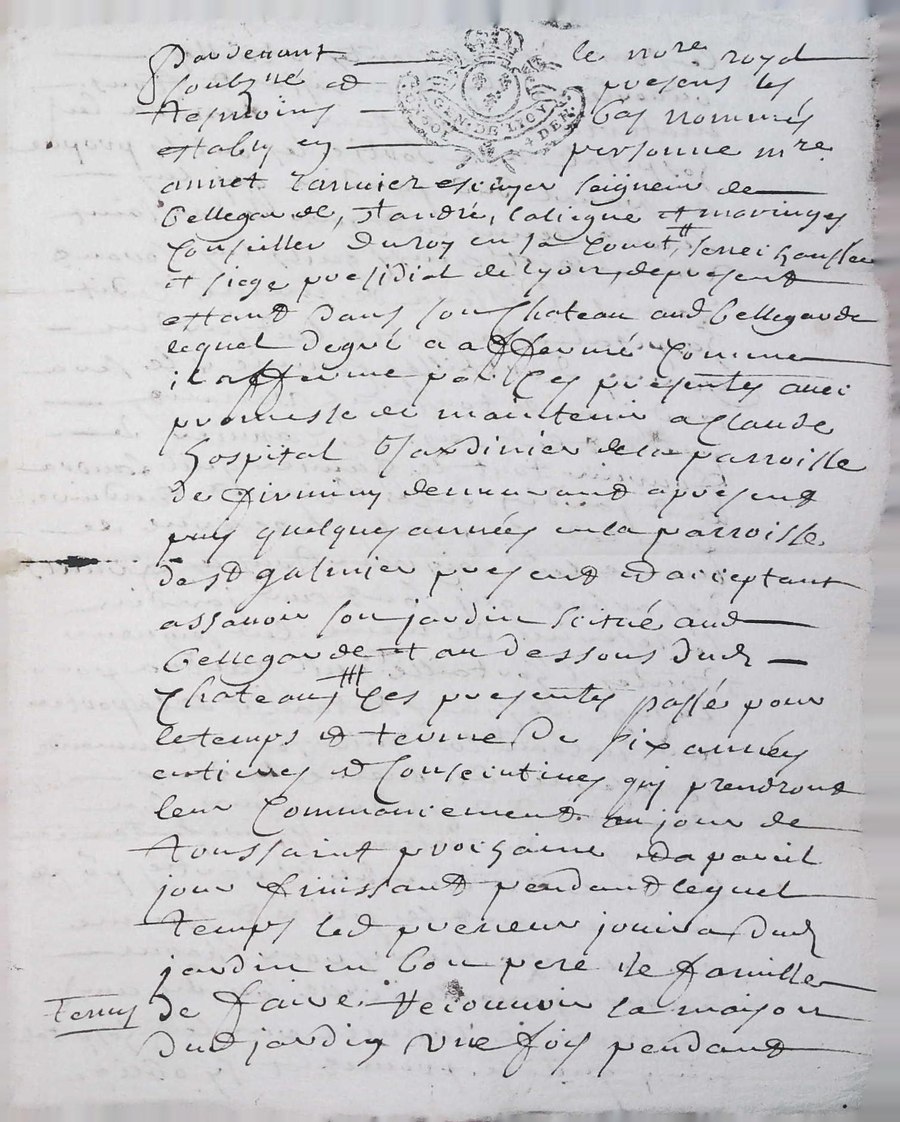 Pardevant le no.re royal
soubz.né et presens les
tesmoins bas nommés
estably en personne m.re
annet ranvier escuyer seigneur de
bellegarde, st andré, et maringes
Conseiller du roy en sa Court, senechaussée
et siege presidial de lyon, de present
estant dans son Chateau aud bellegarde
lequel de gré a affermé Comme
il afferme par Ces presentes avec
promesse de maintenir a Claude
hospital jardinier de la parroisse
de firminy demeurant a present
puis quelques années en la parroisse
de st galmier present et acceptant
assavoir son jardin scitué aud
bellegarde et au dessous dud
Chateau, Ces presentes passé pour
le temps et terme de six années
entieres et Consecutives qui prendront
leur Commancement au jour de
toussaint prochaine et a pareil
jour finissant pendant lequel
temps led preneur jouira dud
jardin en bon pere de famille
tenus de faire recouvrir la maison
dud jardin une fois pendant